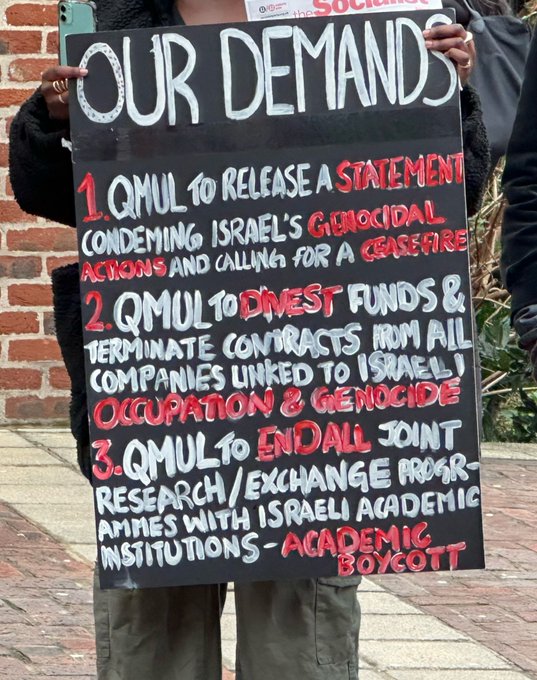 the Socialist
OUR DEMANDS
1. QMUL TO RELEASE A STATEMENT
CONDEMING ISRAEL'S GENOCIDAL
ACTIONS AND CALLING FOR A CEASEFIRE
2. QMUL TO DIVEST FUNDS &
TERMINATE CONTRACTS FROM ALL
COMPANIES LINKED TO ISRAELI
OCCUPATION & GENOCIDE
3. QMUL TO END ALL JOINT
RESEARCH/EXCHANGE PROGR-
AMMES WITH ISRAELI ACADEMIC
INSTITUTIONS - ACADEMIC
BOYCOTT